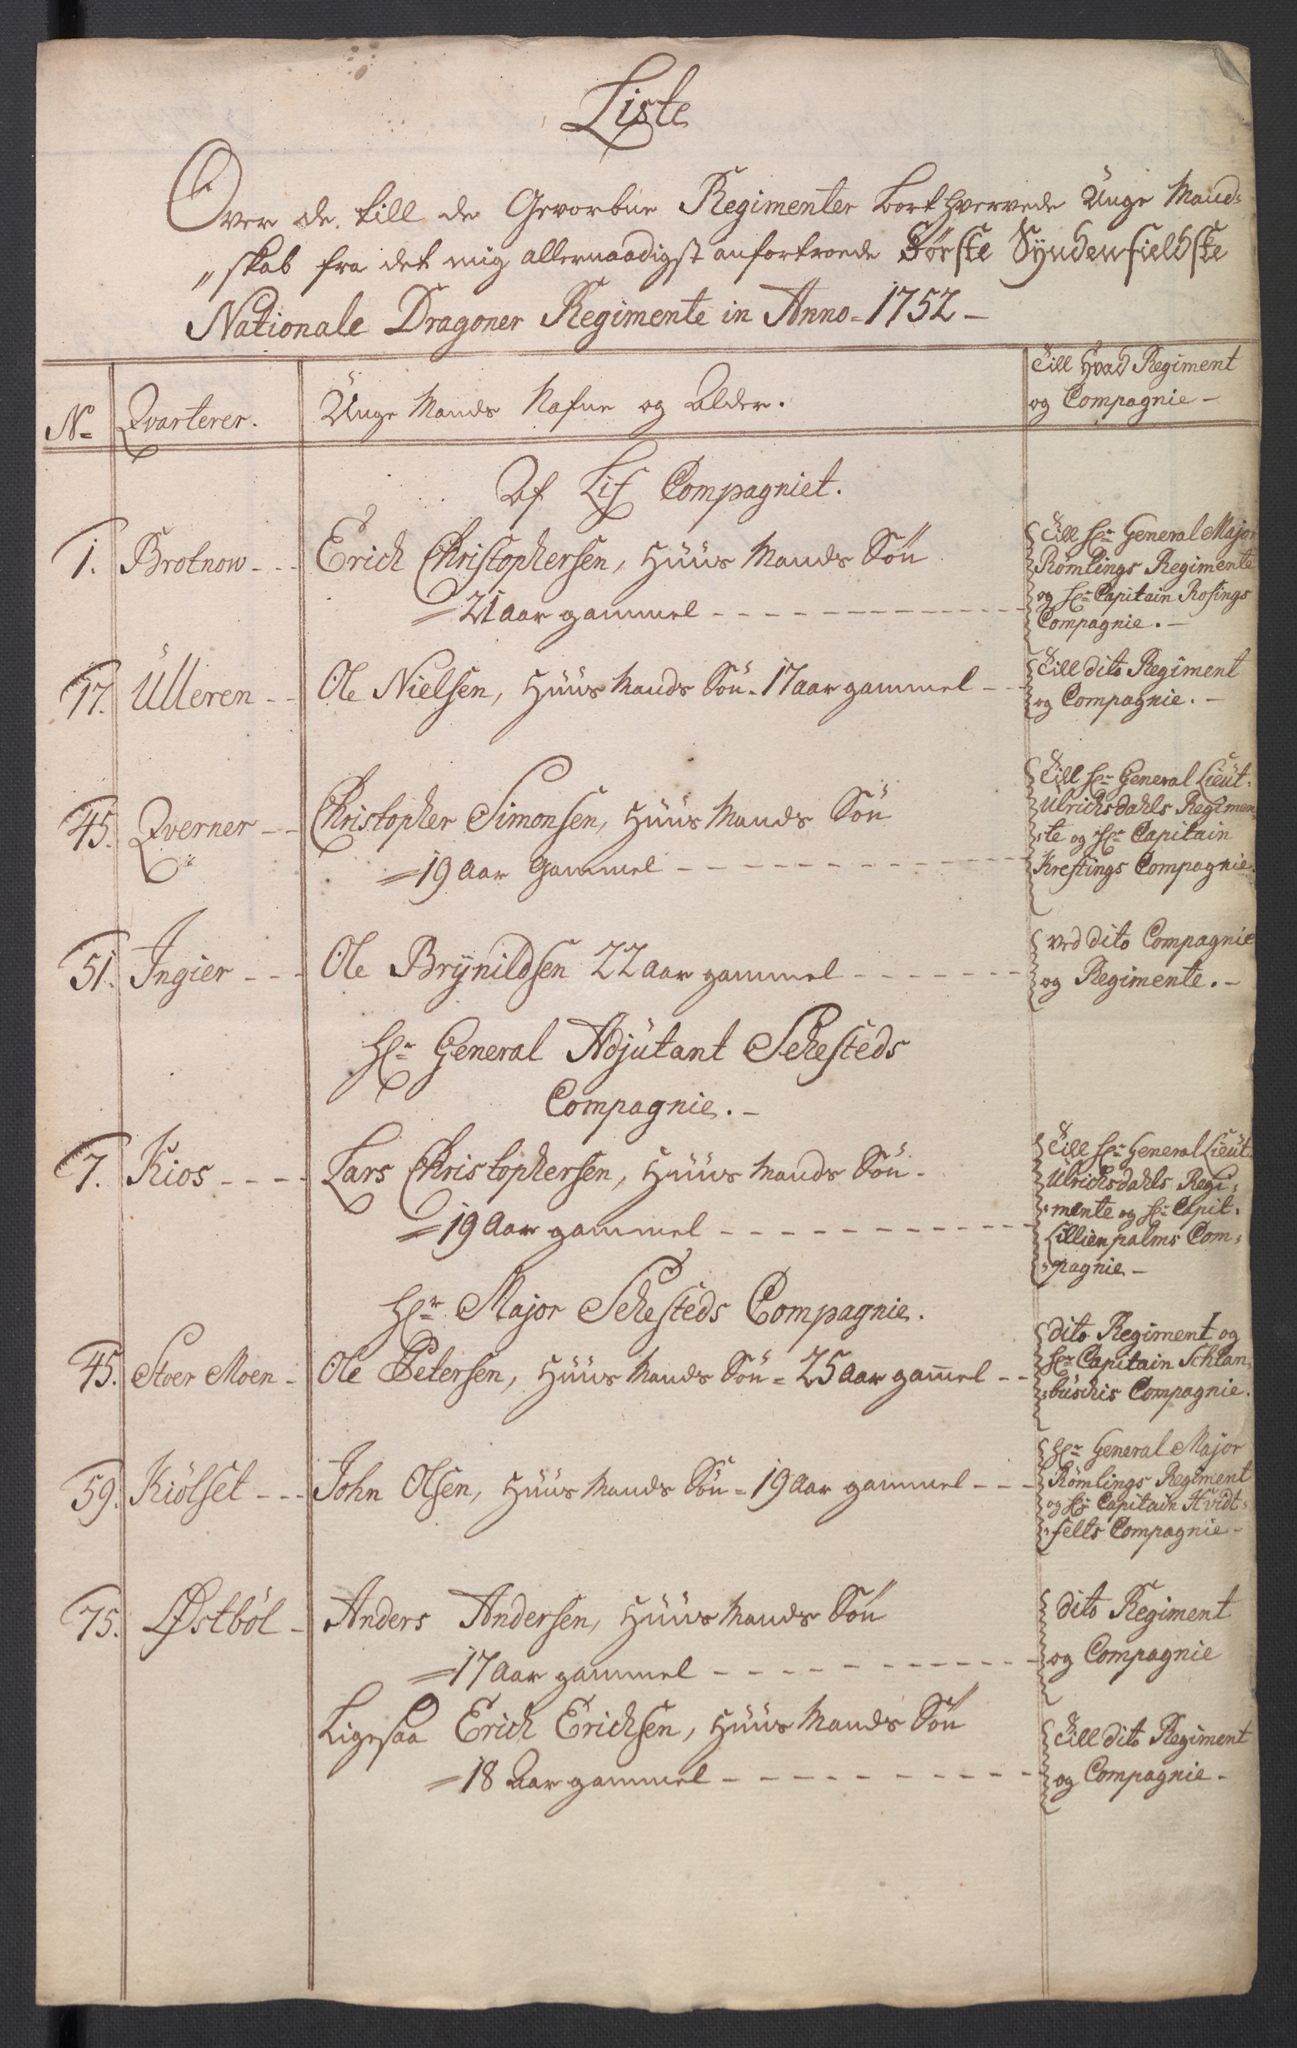 Liste
Over de till de Gevorbne Regimenter borthvervede Unge Mand=
„skab fra det mig allernaadigst anfortroede Første Syndenfieldske
Nationale Dragoner Regimente in Anno = 1752 —
No Qvarterer. Unge Mands Nafne og Alder. Till hvad Regiment
og Compagnie —
Af Lif Compagniet.
1. Brotnow - - Erich Christophersen, Huus Mands Søn Till Hr General Major
Römlings Regimente
= 21 aar gammel - - - - og Hr Capitain Rosings
Compagnie. —
17. Ulleren - - Ole Nielsen, Huus Mands Søn - 17 aar gammel - - Till dito Regiment
og Compagnie. —
45. Qverner - - Christopher Simonsen, Huus Mands Søn Till Hr General Lieut:
Ulrichsdahls Regimen=
=te og Hr Capitain
= 19 Aar Gammel - - - - Kreftings Compagnie.
51. Ingier - - - Ole Brÿnildsen 22 aar gammel - - - - ved dito Compagnie
og Regimente. —
Hr General Adjutant Sehesteds
Compagnie. —
7. Kios - - - - Lars Christophersen, Huus Mands Søn - Till Hr General Lieut:
Ulrichsdahls Regi=
= 19 Aar gammel - - - - =mente og Hr Capit:
Lillienpalms Com=
=pagnie —
Hr Major Sehesteds Compagnie.
45. Stoer Moen - Ole Petersen, Huus Mands Søn = 25 Aar gam̄el - - dito Regiment og
Hr Capitain Schlan=
=buschis Compagnie.
59. Kiölset - - - John Olsen, Huus Mands Søn = 19 Aar gammel - - - Hr General Major
Römlings Regiment
og Hr Capitain Hvidt=
=felts Compagnie —
75. Østböl - Anders Andersen, Huus Mands Søn dito Regiment
= 17 Aar gammel - - - - og Compagnie
Ligesaa Erich Erichsen, Huus Mands Søn Till dito Regiment
= 18 Aar gammel - - - - og Compagnie -